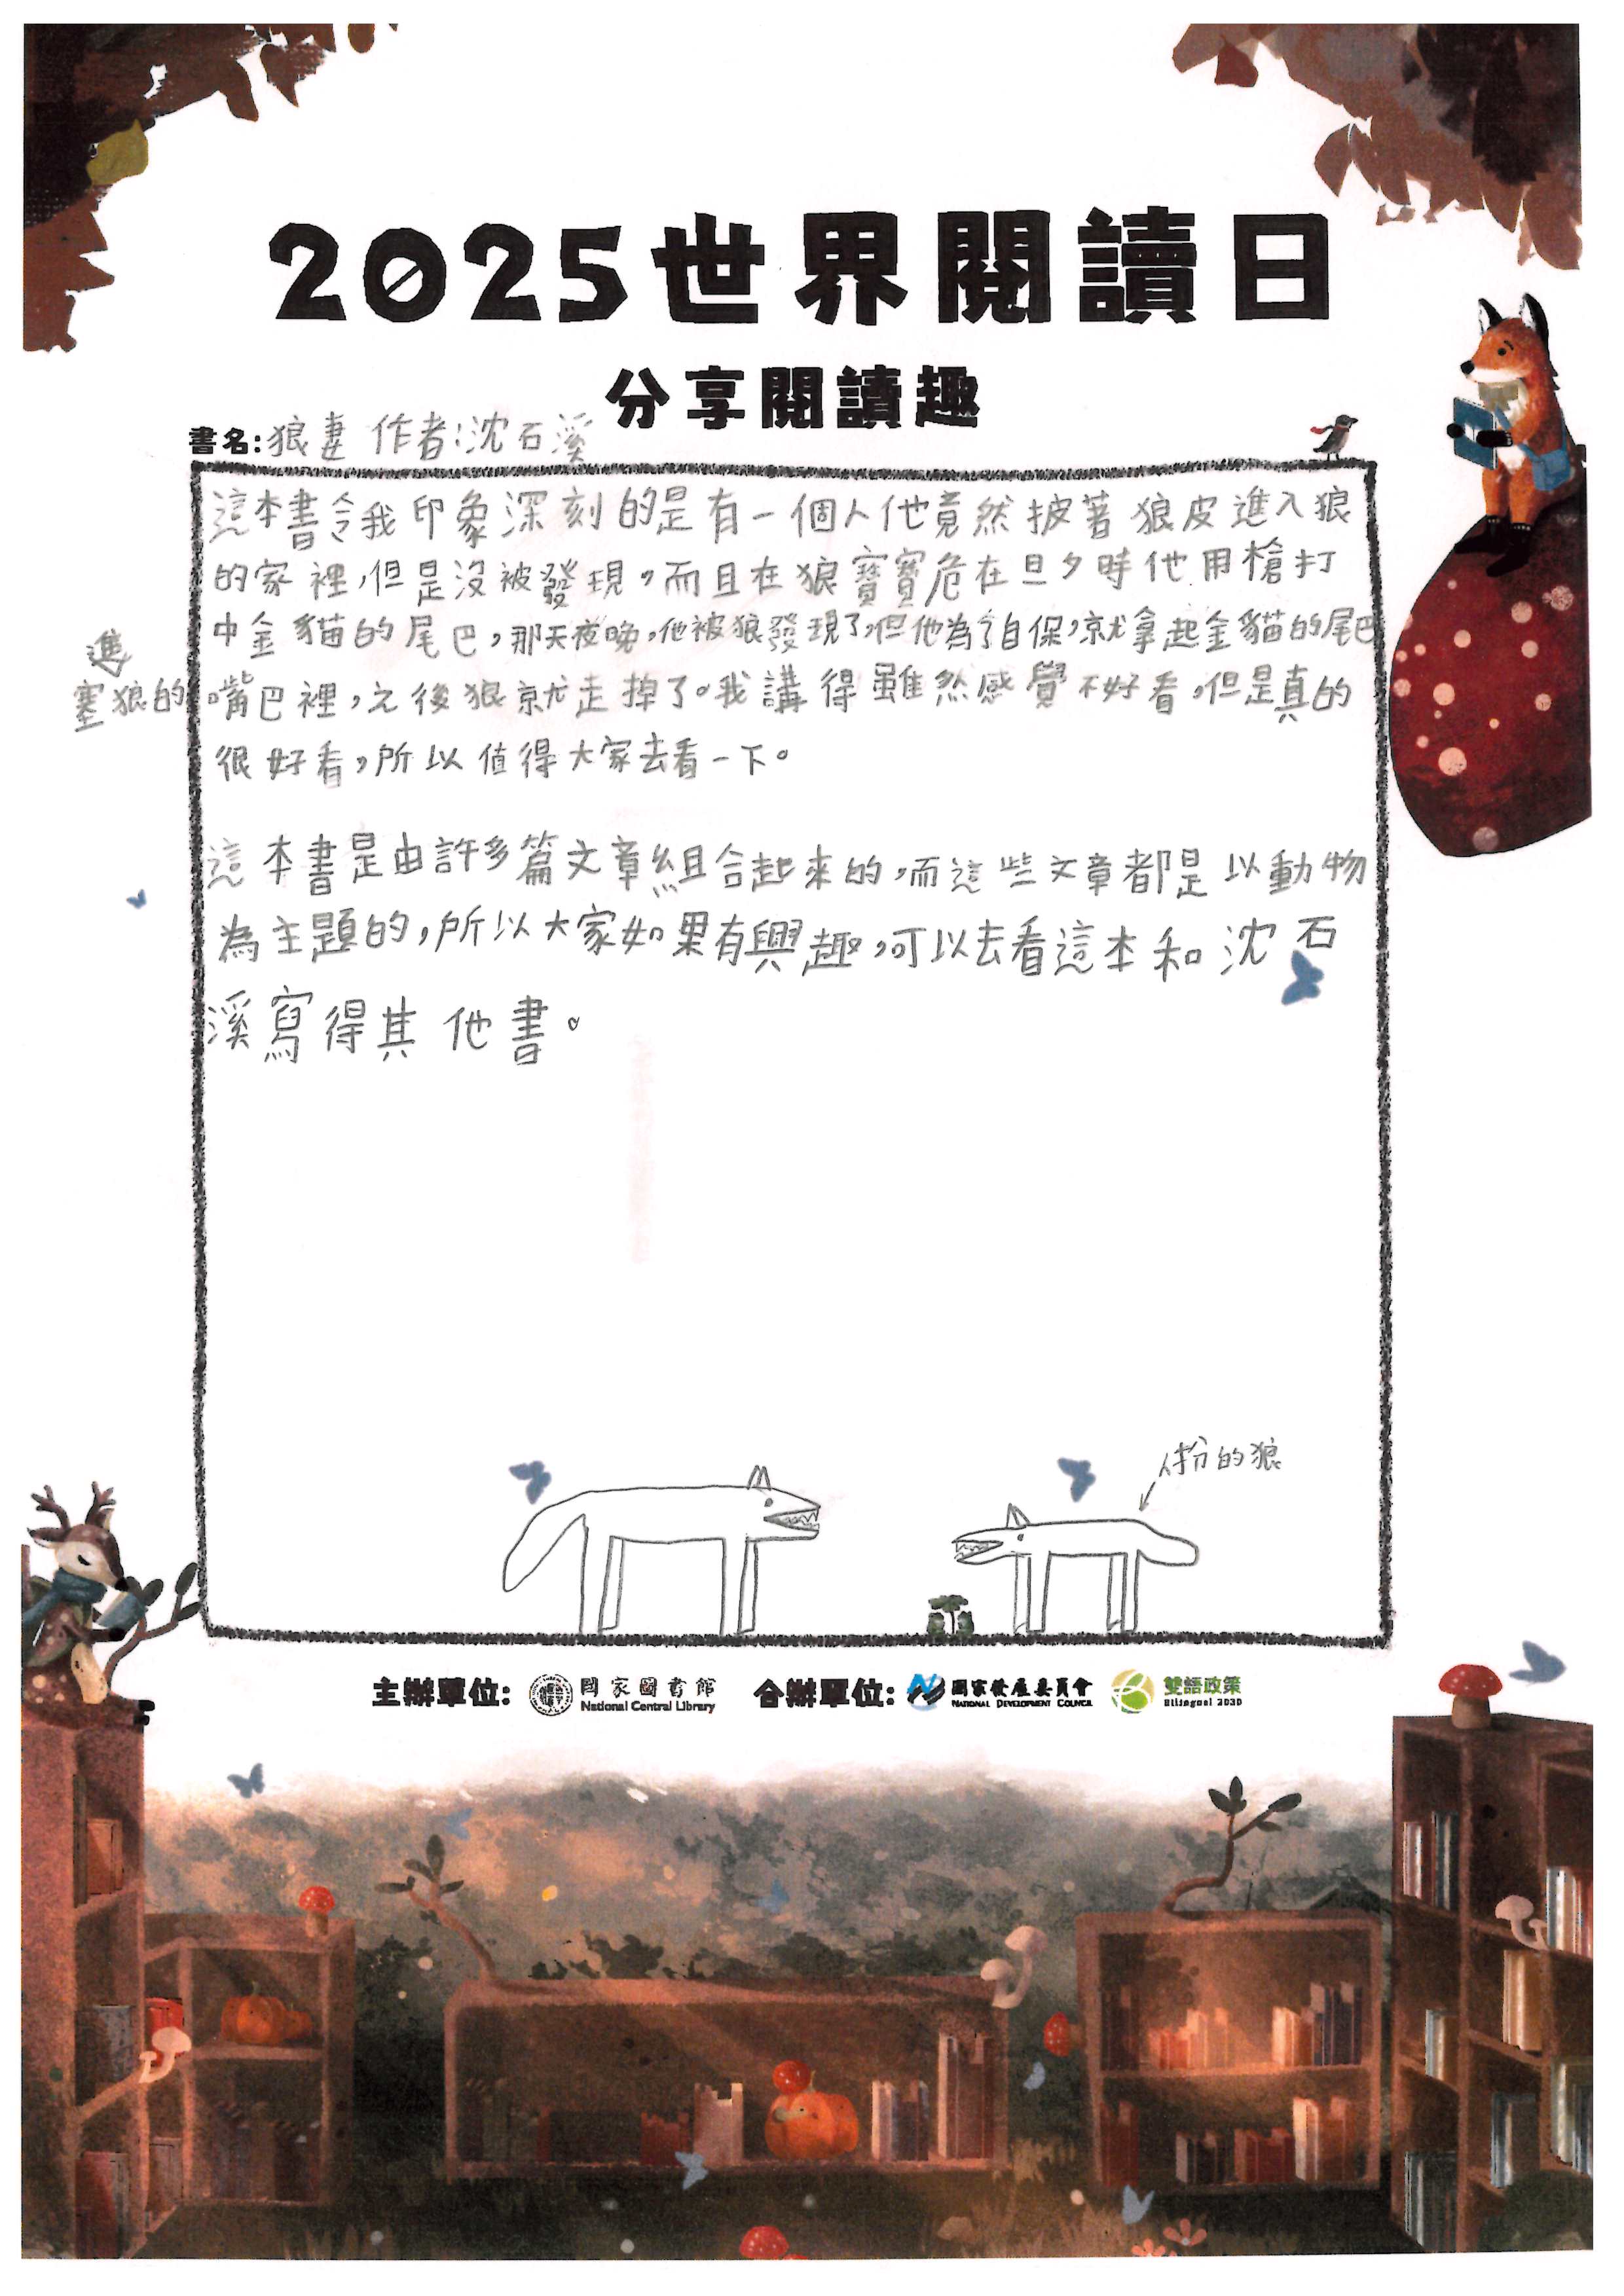 2025世界閱讀日
分享閱讀趣
書名:狼妻 作者:沈石溪
這本書令我印象深刻的是有一個人他竟然披著狼皮進入狼
的家裡,但是沒被發現,而且在狼寶寶危在旦夕時他用槍打
中金貓的尾巴,那天夜晚,他被狼發現了,但他為了自保,就拿起金貓的尾巴
塞進狼的嘴巴裡,之後狼就走掉了。我講得雖然感覺不好看,但是真的
很好看,所以值得大家去看一下。
這本書是由許多篇文章組合起來的,而這些文章都是以動物
為主題的,所以大家如果有興趣,可以去看這本和沈石
溪寫得其他書。
人扮的狼
主辦單位: 國家圖書館 National Central Library 合辦單位: 國家發展委員會 National Development Council 雙語政策 Bilingual 2030